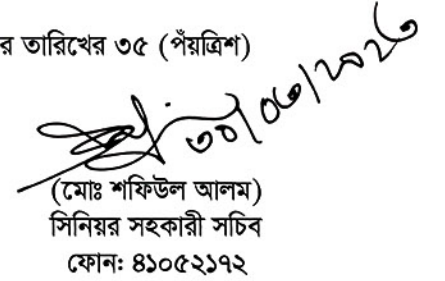 র তারিখের ৩৫ (পঁয়ত্রিশ)
৩০/০৬/২০২৩
(মোঃ শফিউল আলম)
সিনিয়র সহকারী সচিব
ফোনঃ ৪১০৫২১৭২